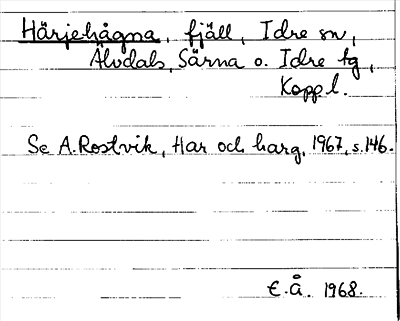 Härjehågna, fjäll, Idre sn,
Älvdals, Särna o. Idre tg,
Koppl.
Se A. Rostvik, Har och harg, 1967, s. 146.
E.Å. 1968.